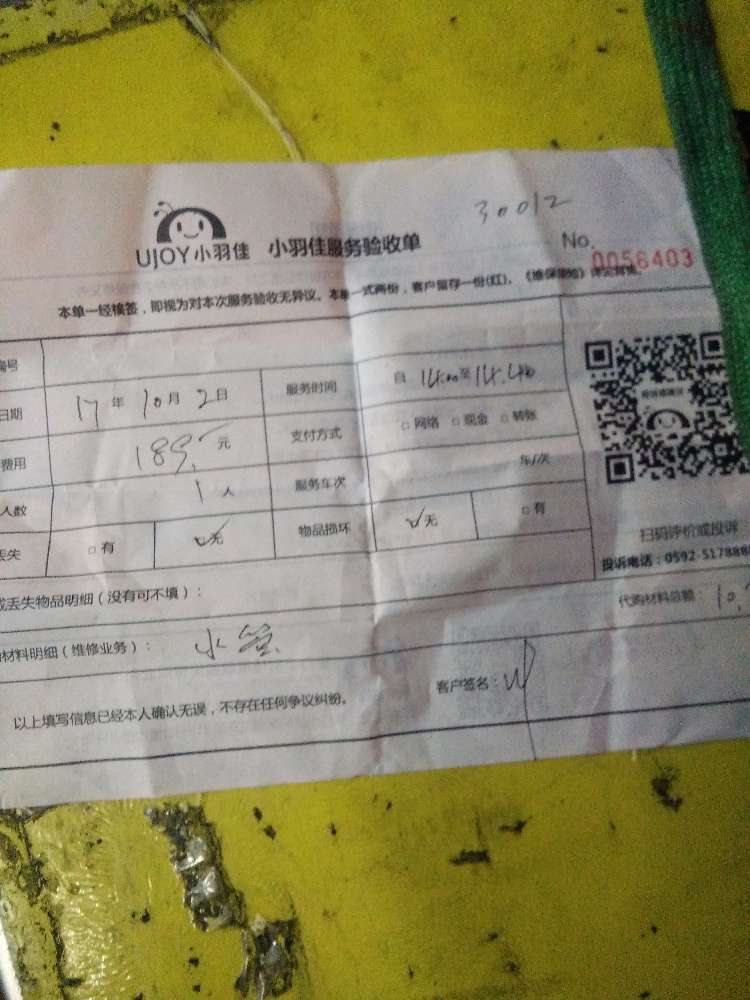 30012
UJOY小羽佳 小羽佳服务验收单
No. 0056403
本单一经核签，即视为对本次服务验收无异议。本单一式两份，客户留存一份(红)。《维保细则》详见背面。
编号
日期 17年 10月 2日 服务时间 自 14:00至14:40
费用 189 元 支付方式 □网络 □现金 □转账
人数 1 人 服务车次 车/次
丢失 □有 ✓无 物品损坏 ✓无 □有
扫码评价或投诉
投诉电话：0592-517888
或丢失物品明细（没有可不填）：
代购材料总额：10
材料明细（维修业务）： 水管
以上填写信息已经本人确认无误，不存在任何争议纠纷。 客户签名：